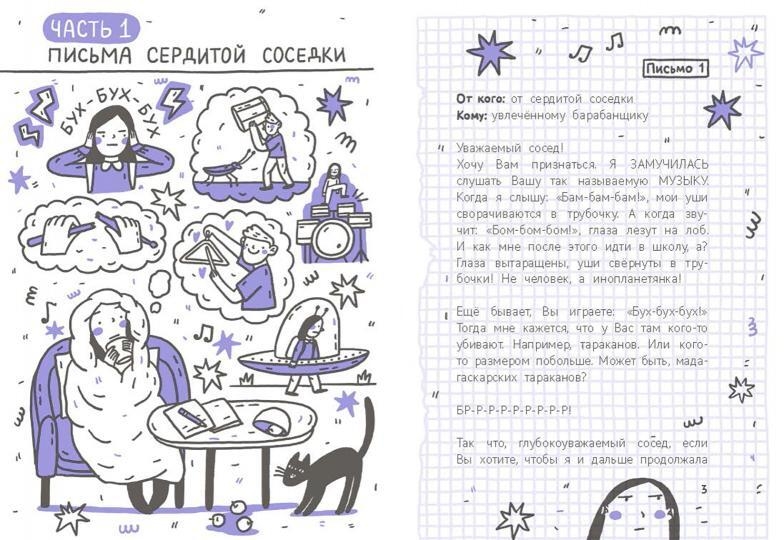 ЧАСТЬ 1
ПИСЬМА СЕРДИТОЙ СОСЕДКИ
БУХ-БУХ-БУХ
Письмо 1
От кого: от сердитой соседки
Кому: увлечённому барабанщику
Уважаемый сосед!
Хочу Вам признаться. Я ЗАМУЧИЛАСЬ
слушать Вашу так называемую МУЗЫКУ.
Когда я слышу: «Бам-бам-бам!», мои уши
сворачиваются в трубочку. А когда зву-
чит: «Бом-бом-бом!», глаза лезут на лоб.
И как мне после этого идти в школу, а?
Глаза вытаращены, уши свёрнуты в тру-
бочки! Не человек, а инопланетянка!
Ещё бывает, Вы играете: «Бух-бух-бух!»
Тогда мне кажется, что у Вас там кого-то
убивают. Например, тараканов. Или кого-
то размером побольше. Может быть, мада-
гаскарских тараканов?
БР-Р-Р-Р-Р-Р-Р-Р-Р!
Так что, глубокоуважаемый сосед, если
Вы хотите, чтобы я и дальше продолжала
3